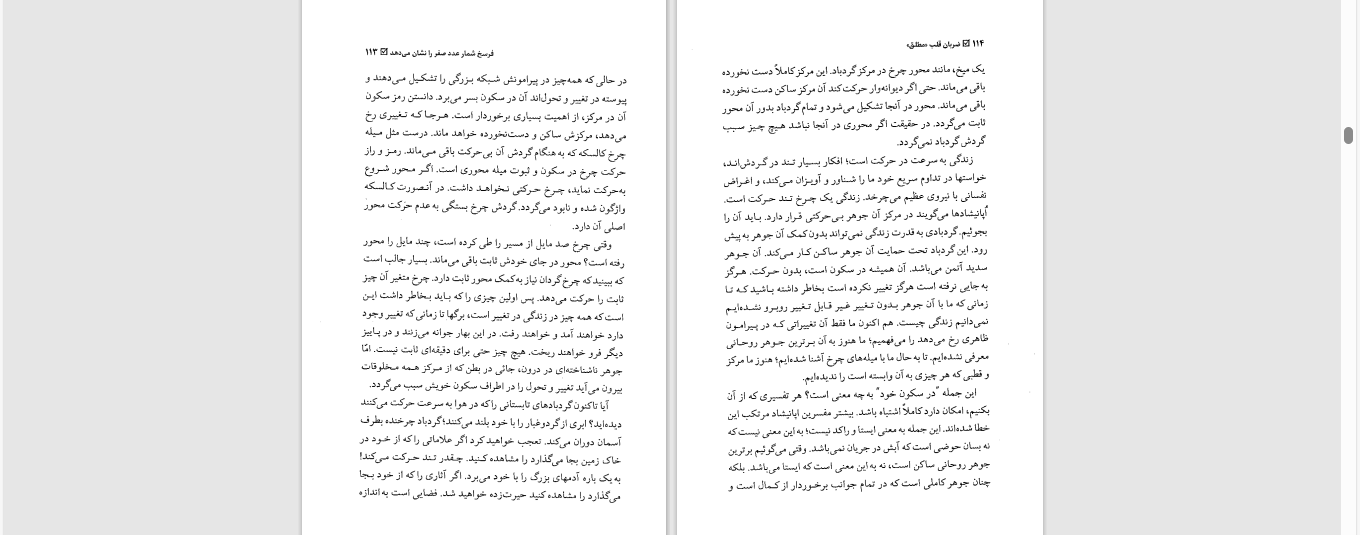 فرسخ شمار عدد صفر را نشان می‌دهد ☑ ۱۱۳
در حالی که همه‌چیز در پیرامونش شبکه بزرگی را تشکیل می‌دهند و
پیوسته در تغییر و تحول‌اند آن در سکون بسر می‌برد. دانستن رمز سکون
آن در مرکز، از اهمیت بسیاری برخوردار است. هرجا که تغییری رخ
می‌دهد، مرکزش ساکن و دست‌نخورده خواهد ماند. درست مثل میله
چرخ کالسکه که به هنگام گردش آن بی‌حرکت باقی می‌ماند. رمز و راز
حرکت چرخ در سکون و ثبوت میله محوری است. اگر محور شروع
به‌حرکت نماید، چرخ حرکتی نخواهد داشت. در آنصورت کالسکه
واژگون شده و نابود می‌گردد. گردش چرخ بستگی به عدم حرکت محور
اصلی آن دارد.
وقتی چرخ صد مایل از مسیر را طی کرده است، چند مایل را محور
رفته است؟ محور در جای خودش ثابت باقی می‌ماند. بسیار جالب است
که ببینید که چرخ گردان نیاز به کمک محور ثابت دارد. چرخ متغیر آن چیز
ثابت را حرکت می‌دهد. پس اولین چیزی را که باید بخاطر داشت این
است که همه چیز در زندگی در تغییر است، برگها تا زمانی که تغییر وجود
دارد خواهند آمد و خواهند رفت. در این بهار جوانه می‌زنند و در پاییز
دیگر فرو خواهند ریخت. هیچ چیز حتی برای دقیقه‌ای ثابت نیست. امّا
جوهر ناشناخته‌ای در درون، جائی در بطن که از مرکز همه مخلوقات
بیرون می‌آید تغییر و تحول را در اطراف سکون خویش سبب می‌گردد.
آیا تاکنون گردبادهای تابستانی را که در هوا به سرعت حرکت می‌کنند
دیده‌اید؟ ابری از گردوغبار را با خود بلند می‌کنند؛ گردباد چرخنده بطرف
آسمان دوران می‌کند. تعجب خواهید کرد اگر علاماتی را که از خود در
خاک زمین بجا می‌گذارد را مشاهده کنید. چقدر تند حرکت می‌کند!
به یک باره آدمهای بزرگ را با خود می‌برد. اگر آثاری را که از خود بجا
می‌گذارد را مشاهده کنید حیرت‌زده خواهید شد. فضایی است به اندازه
۱۱۴ ☑ ضربان قلب «مطلق»
یک میخ، مانند محور چرخ در مرکز گردباد. این مرکز کاملاً دست نخورده
باقی می‌ماند. حتی اگر دیوانه‌وار حرکت کند آن مرکز ساکن دست نخورده
باقی می‌ماند. محور در آنجا تشکیل می‌شود و تمام گردباد بدور آن محور
ثابت می‌گردد. در حقیقت اگر محوری در آنجا نباشد هیچ چیز سبب
گردش گردباد نمی‌گردد.
زندگی به سرعت در حرکت است؛ افکار بسیار تند در گردش‌اند،
خواستها در تداوم سریع خود ما را شناور و آویزان می‌کند، و اغراض
نفسانی با نیروی عظیم می‌چرخد. زندگی یک چرخ تند حرکت است.
اُپانیشادها می‌گویند در مرکز آن جوهر بی‌حرکتی قرار دارد. باید آن را
بجوئیم. گردبادی به قدرت زندگی نمی‌تواند بدون کمک آن جوهر به پیش
رود. این گردباد تحت حمایت آن جوهر ساکن کار می‌کند. آن جوهر
سدید آتمن می‌باشد. آن همیشه در سکون است، بدون حرکت. هرگز
به جایی نرفته است هرگز تغییر نکرده است بخاطر داشته باشید که تا
زمانی که ما با آن جوهر بدون تغییر غیر قابل تغییر روبرو نشده‌ایم
نمی‌دانیم زندگی چیست. هم اکنون ما فقط آن تغییراتی که در پیرامون
ظاهری رخ می‌دهد را می‌فهمیم؛ ما هنوز به آن برترین جوهر روحانی
معرفی نشده‌ایم. تا به حال ما با میله‌های چرخ آشنا شده‌ایم؛ هنوز ما مرکز
و قطبی که هر چیزی به آن وابسته است را ندیده‌ایم.
این جمله "در سکون خود" به چه معنی است؟ هر تفسیری که از آن
بکنیم، امکان دارد کاملاً اشتباه باشد. بیشتر مفسرین اپانیشاد مرتکب این
خطا شده‌اند. این جمله به معنی ایستا و راکد نیست؛ به این معنی نیست که
نه بسان حوضی است که آبش در جریان نمی‌باشد. وقتی می‌گوئیم برترین
جوهر روحانی ساکن است، نه به این معنی است که ایستا می‌باشد. بلکه
چنان جوهر کاملی است که در تمام جوانب برخوردار از کمال است و